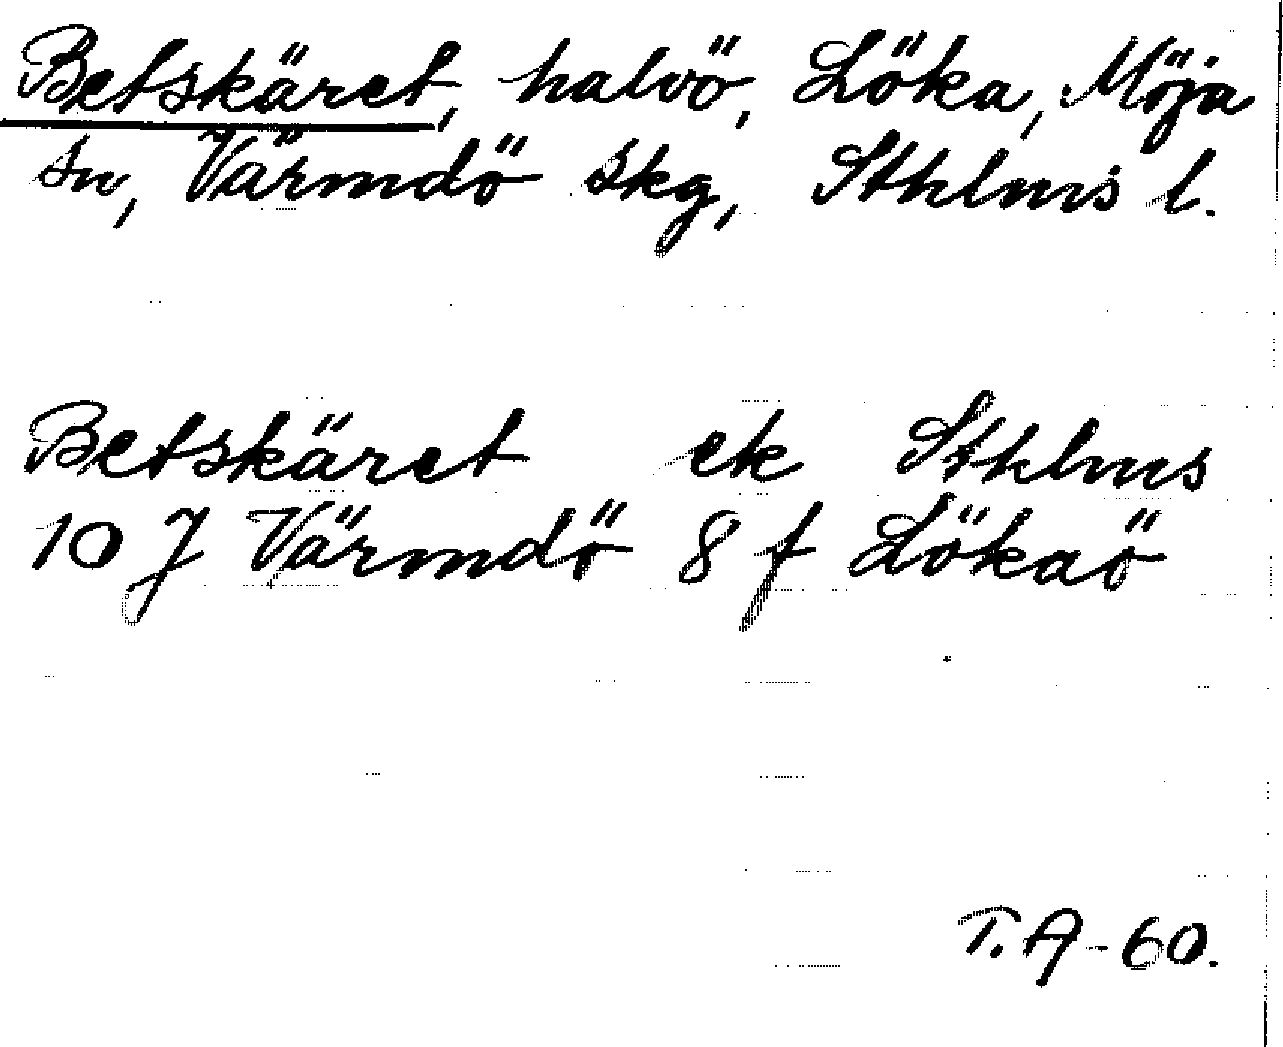 Betskäret, halvö, Löka, Möja
sn, Värmdö skg, Sthlms l.
Betskäret ek Sthlms
10 J Värmdö 8 f Lökaö
T.A-60.